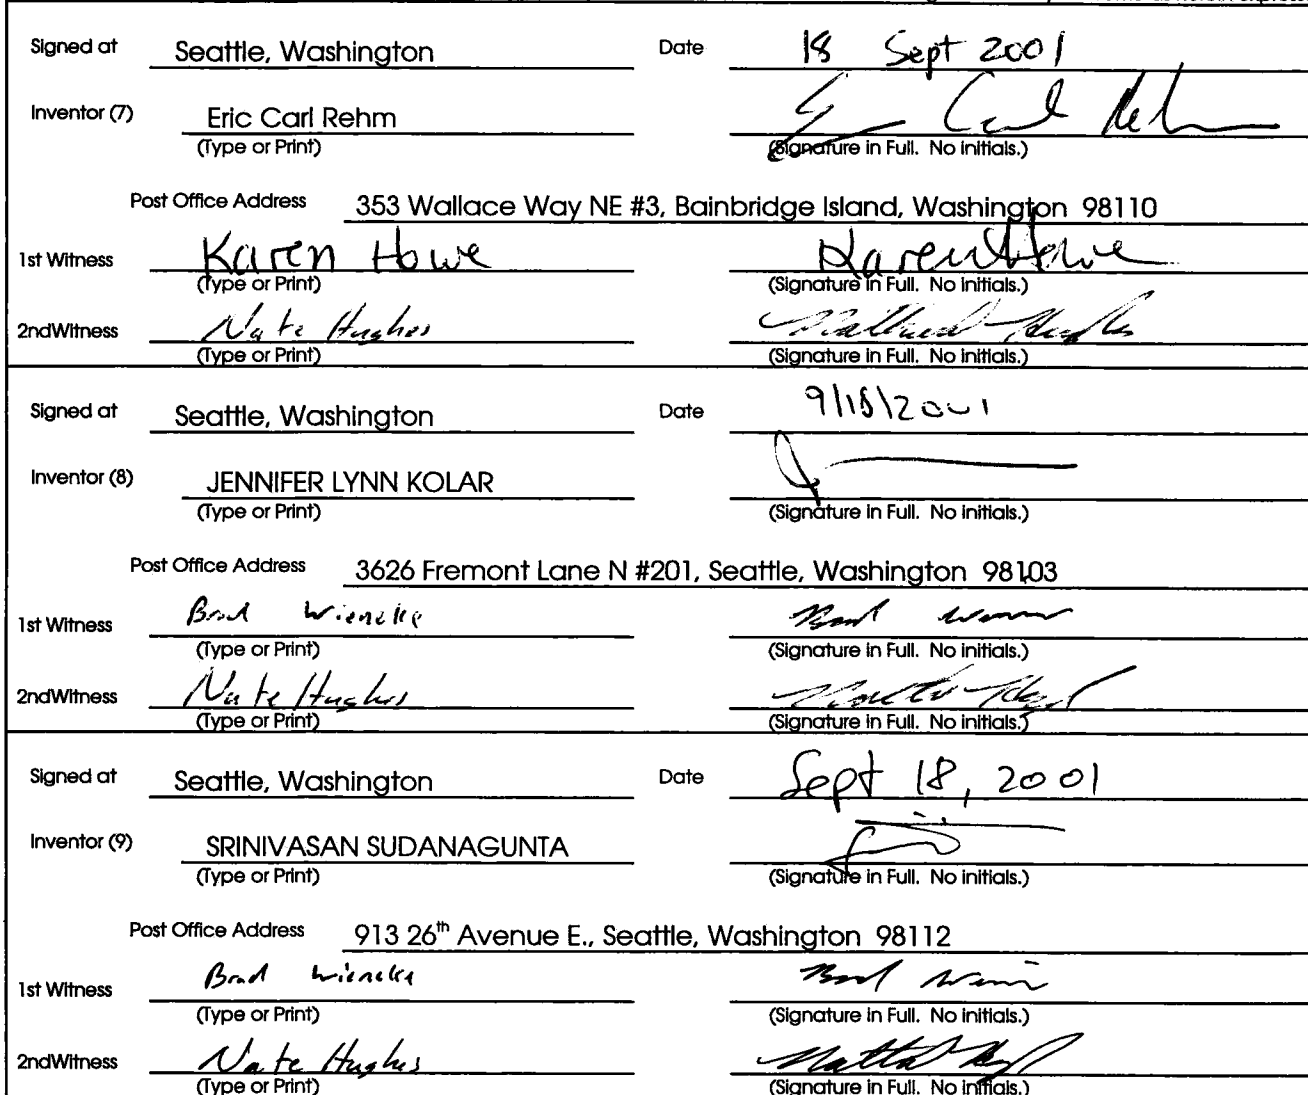 Signed at Seattle, Washington Date 18 Sept 2001
Inventor (7) Eric Carl Rehm Eric Carl Rehm
(Type or Print) (Signature in Full. No initials.)
Post Office Address 353 Wallace Way NE #3, Bainbridge Island, Washington 98110
1st Witness Karen Howe Karen Howe
(Type or Print) (Signature in Full. No initials.)
2ndWitness Nate Hughes
(Type or Print) (Signature in Full. No initials.)
Signed at Seattle, Washington Date 9/18/2001
Inventor (8) JENNIFER LYNN KOLAR
(Type or Print) (Signature in Full. No initials.)
Post Office Address 3626 Fremont Lane N #201, Seattle, Washington 98103
1st Witness Brad Wieneke
(Type or Print) (Signature in Full. No initials.)
2ndWitness Nate Hughes
(Type or Print) (Signature in Full. No initials.)
Signed at Seattle, Washington Date Sept 18, 2001
Inventor (9) SRINIVASAN SUDANAGUNTA
(Type or Print) (Signature in Full. No initials.)
Post Office Address 913 26th Avenue E., Seattle, Washington 98112
1st Witness Brad Wieneke
(Type or Print) (Signature in Full. No initials.)
2ndWitness Nate Hughes
(Type or Print) (Signature in Full. No initials.)